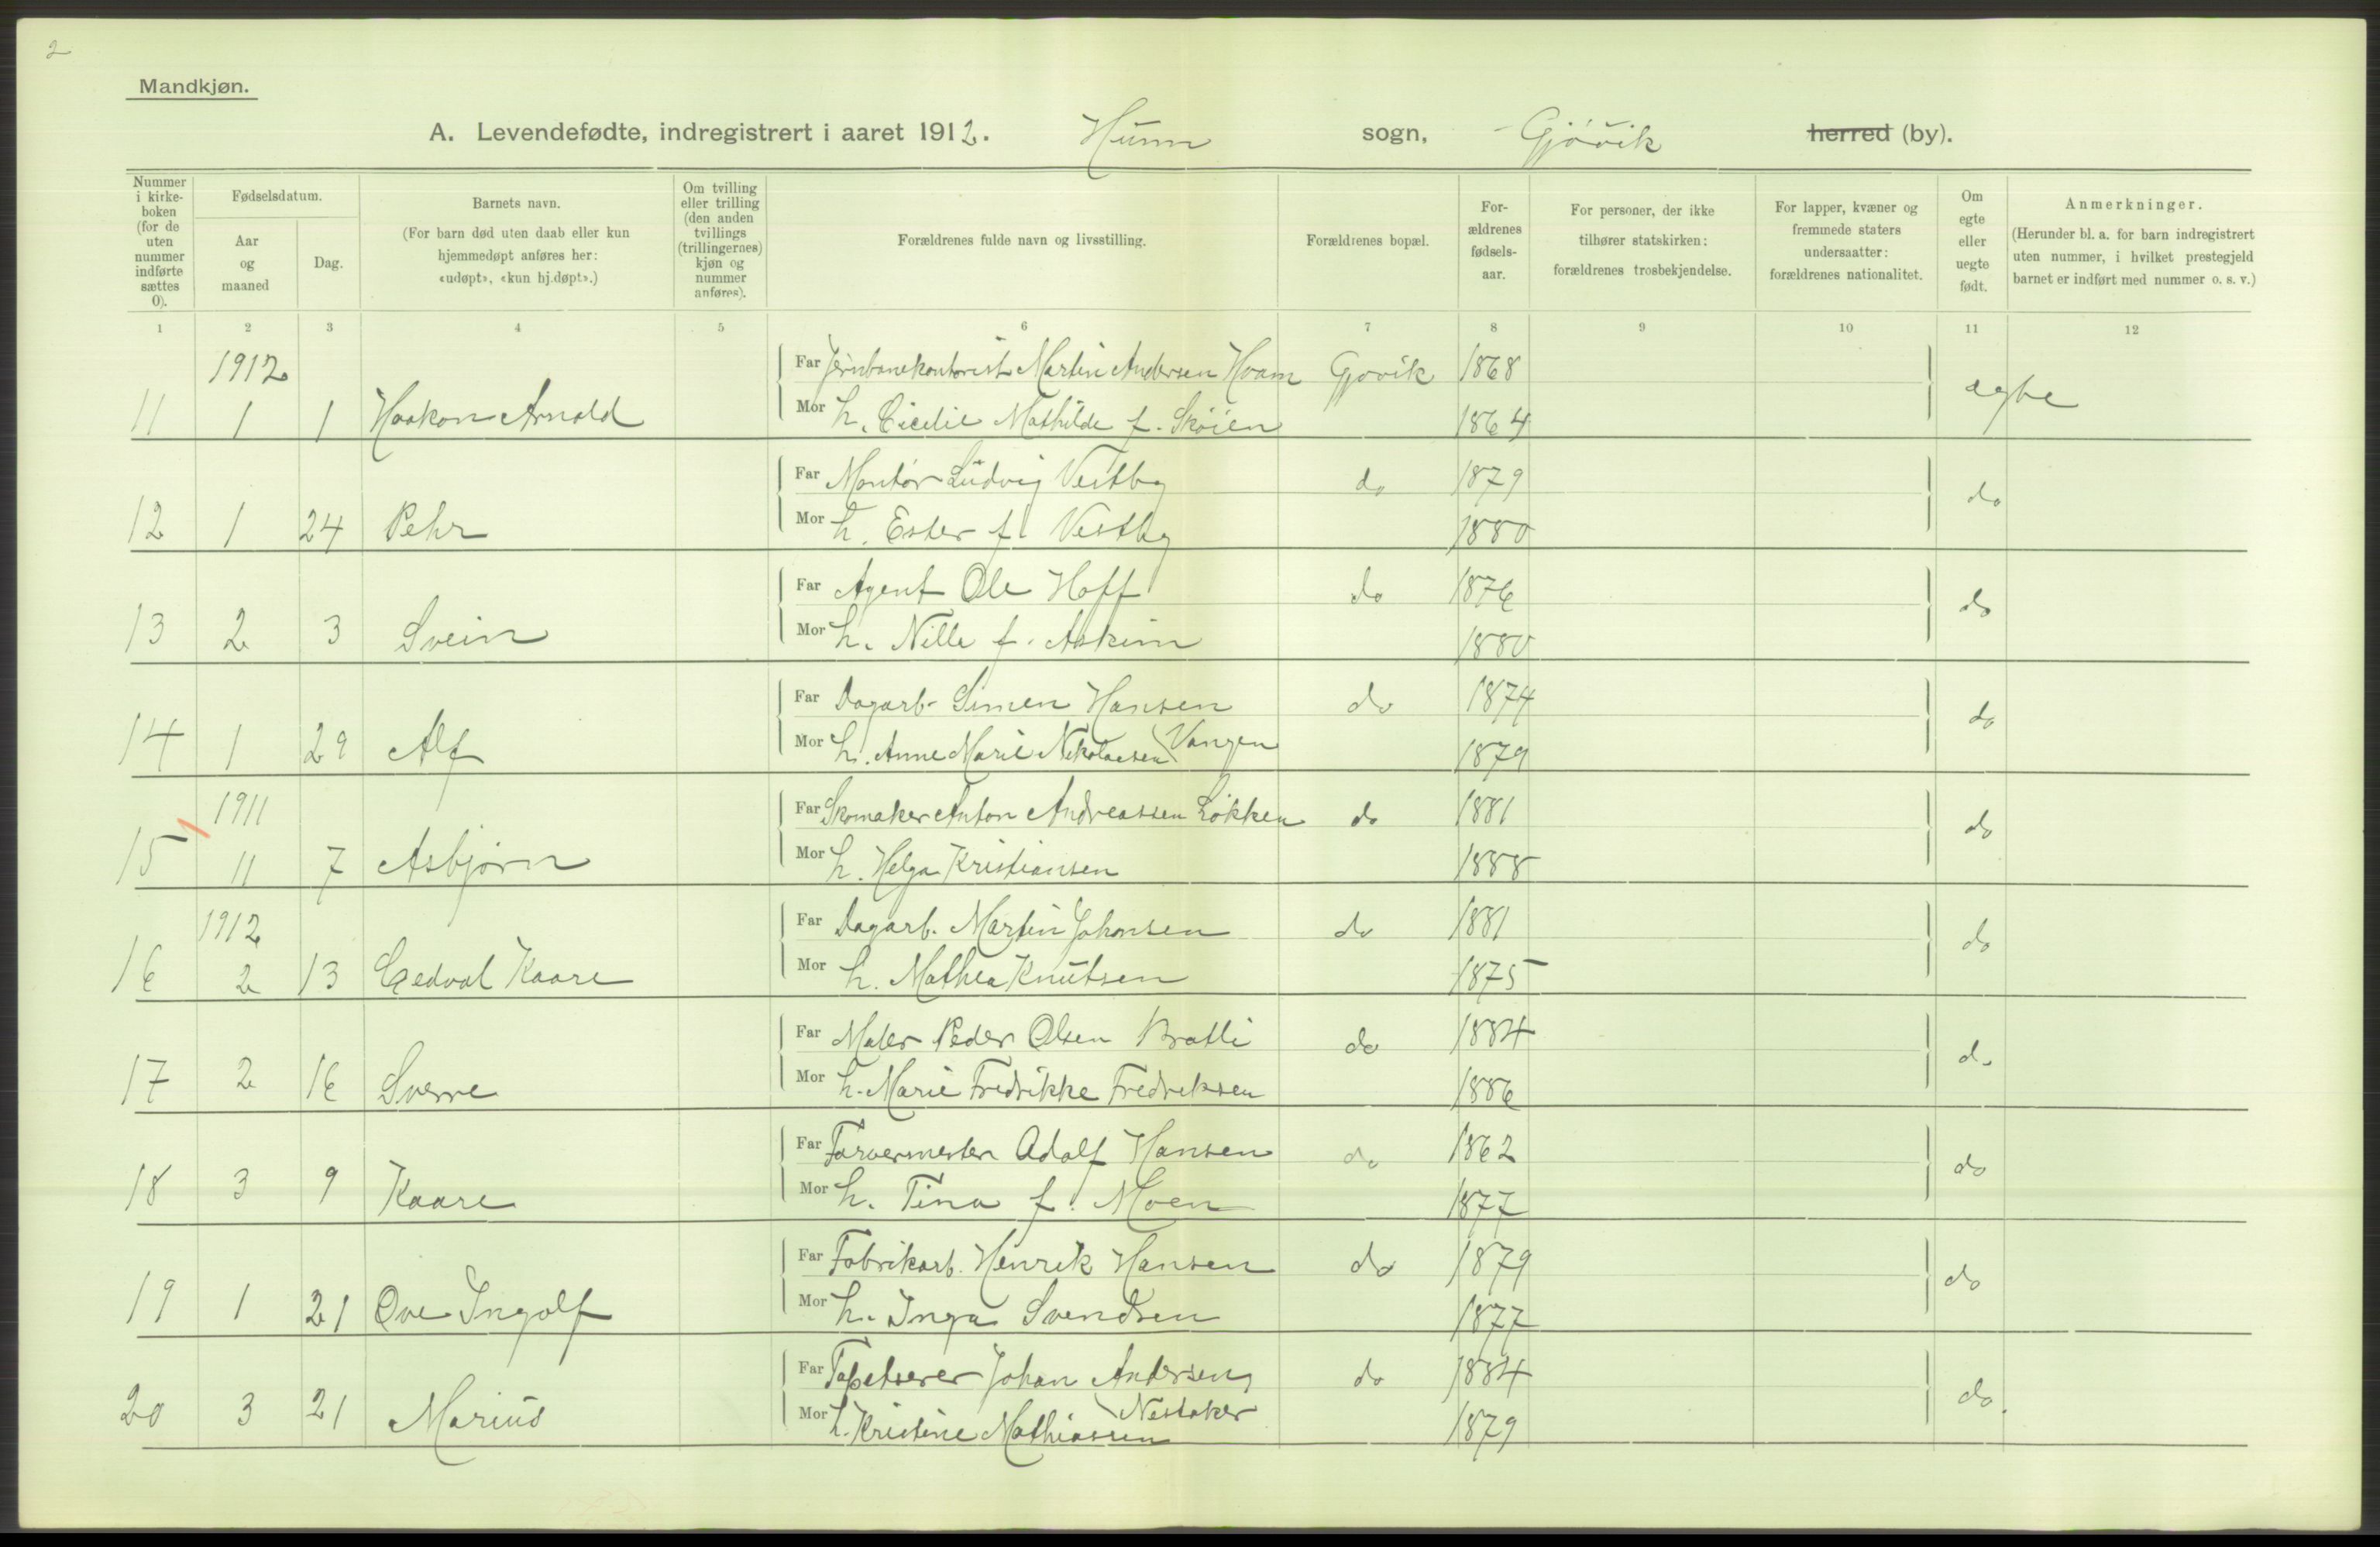 2
Mandkjøn.
A. Levendefødte, indregistrert i aaret 1912. Hunn sogn, Gjøvik herred (by).
Nummer i kirke-boken (for de uten nummer indførte sættes 0).
Fødselsdatum.
Aar og maaned
Dag.
Barnets navn.
(For barn død uten daab eller kun hjemmedøpt anføres her: «udøpt», «kun hj.døpt».)
Om tvilling eller trilling (den anden tvillings (trillingernes) kjøn og nummer anføres).
Forældrenes fulde navn og livsstilling.
Forældrenes bopæl.
For-ældrenes fødsels-aar.
For personer, der ikke tilhører statskirken: forældrenes trosbekjendelse.
For lapper, kvæner og fremmede staters undersaatter: forældrenes nationalitet.
Om egte eller uegte født.
Anmerkninger.
(Herunder bl. a. for barn indregistrert uten nummer, i hvilket prestegjeld barnet er indført med nummer o. s. v.)
1 2 3 4 5 6 7 8 9 10 11 12
1912
Far Jernbanekontorist Martin Andersen Hvam Gjøvik 1868
11 1 1 Haakon Arnold ægte
Mor h. Cicilie Mathilde f. Skøien 1864
Far Montør Ludvig Vestby do 1879
12 1 24 Pehr do
Mor h. Ester f. Vestby 1880
Far Agent Ole Hoff do 1876
13 2 3 Svein do
Mor h. Nille f. Askim 1880
Far Dagarb. Simen Hansen do 1874
Vangen
14 1 29 Alf do
Mor h. Anne Marie Nikolaesen 1879
1911
Far Skomaker Anton Andreassen Løkken do 1881
15 11 7 Asbjørn do
Mor h. Helga Kristiansen 1888
1912
Far Dagarb. Martin Johansen do 1881
16 2 13 Kaare do
Mor h. Mathea Knutsen 1875
Far Maler Peder Olsen Bratli do 1884
17 2 16 Sverre do
Mor h. Marie Fredrikke Fredriksen 1886
Far Farvermester Adolf Hansen do 1862
18 3 9 Kaare do
Mor h. Tina f. Moen 1877
Far Fabrikarb. Henrik Hansen do 1879
19 1 21 Ove Ingolf do
Mor h. Inga Svendsen 1877
Far Tapetserer Johan Andersen do 1884
Nestaker
20 3 21 Marius do.
Mor h. Kristine Mathiassen 1879